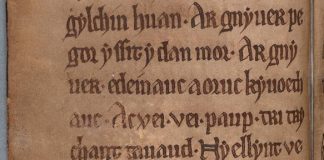 gylchin huan. Ar gnyuer pe
gor yssit y dan mor. Ar gny
uer. edeinauc aoruc kyuoeth
auc. Ac vei. vei. paup. tri try
chant tauaud. Ny ellynt ve